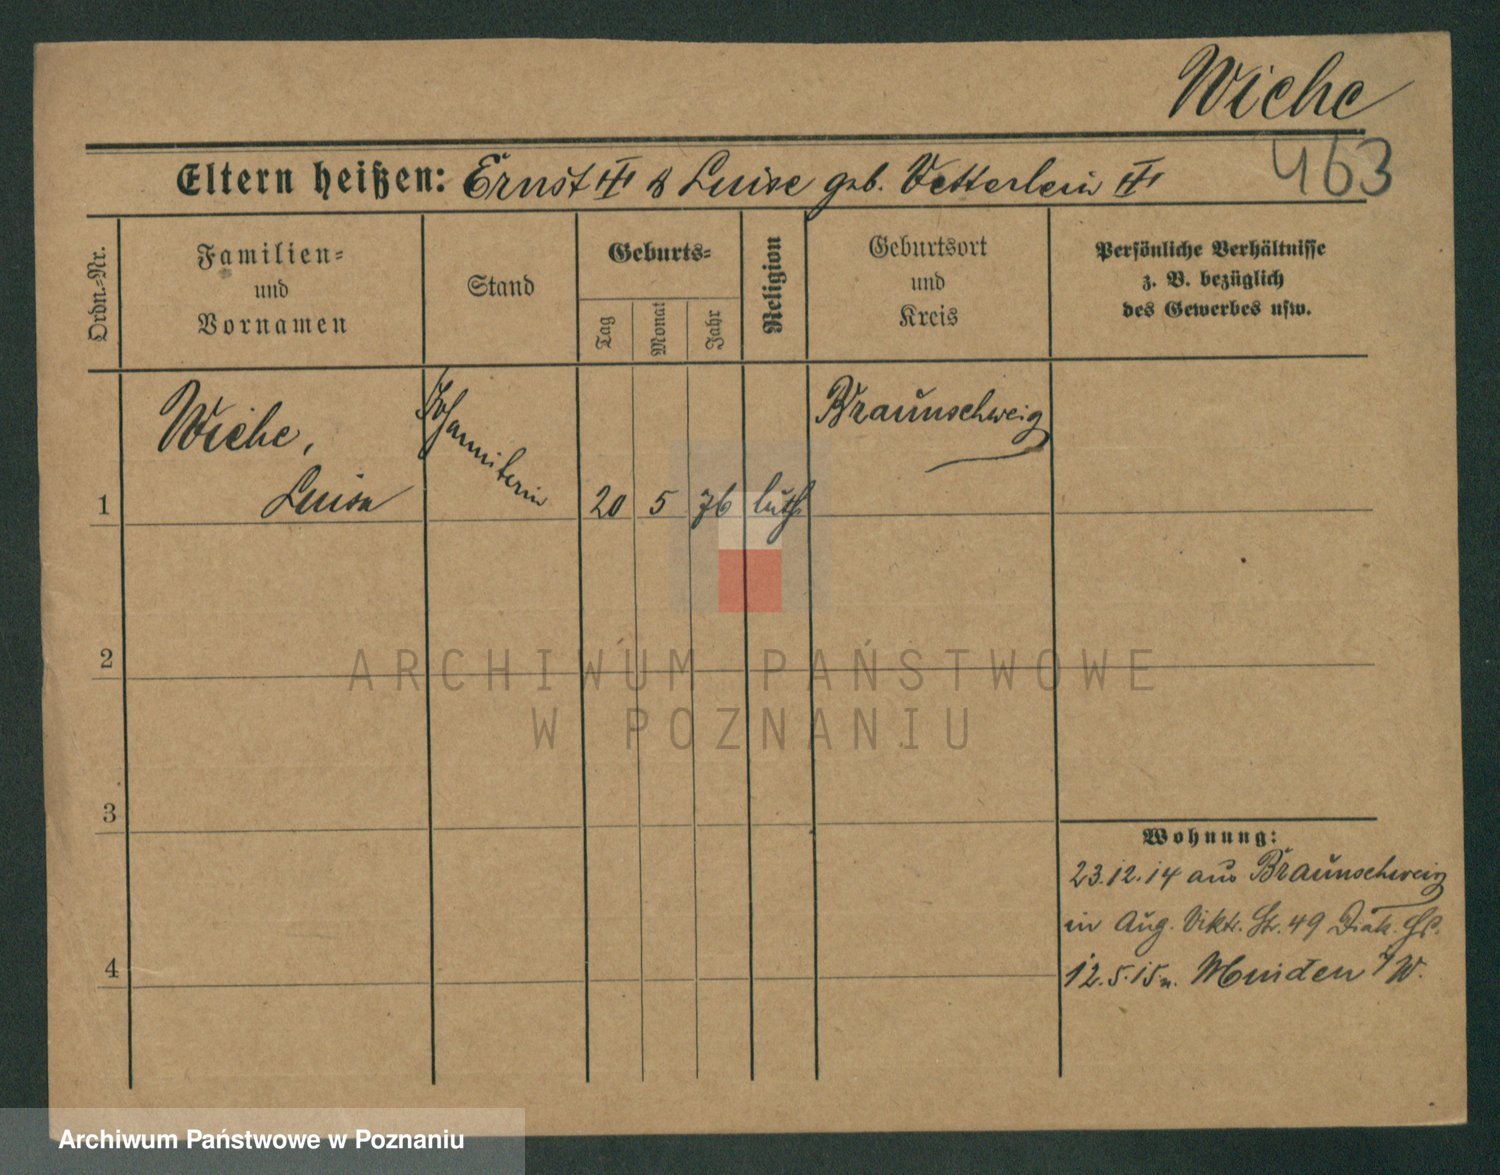 Wiehe
463
Eltern heißen: Ernst & Luise geb. Vetterlein
Ordn.-Nr.
Familien-
und
Vornamen
Stand
Geburts-
Tag
Monat
Jahr
Religion
Geburtsort
und
Kreis
Persönliche Verhältnisse
z. B. bezüglich
des Gewerbes usw.
1
Wiehe,
Luise
Johanniterin
20 5 76 luth.
Braunschweig
2
3
4
Wohnung:
23.12.14 aus Braunschweig
in Aug. Viktr. Str. 49 Diak. Hs.
12.5.15 n. Minden i/W.
ARCHIWUM PAŃSTWOWE
W POZNANIU
Archiwum Państwowe w Poznaniu